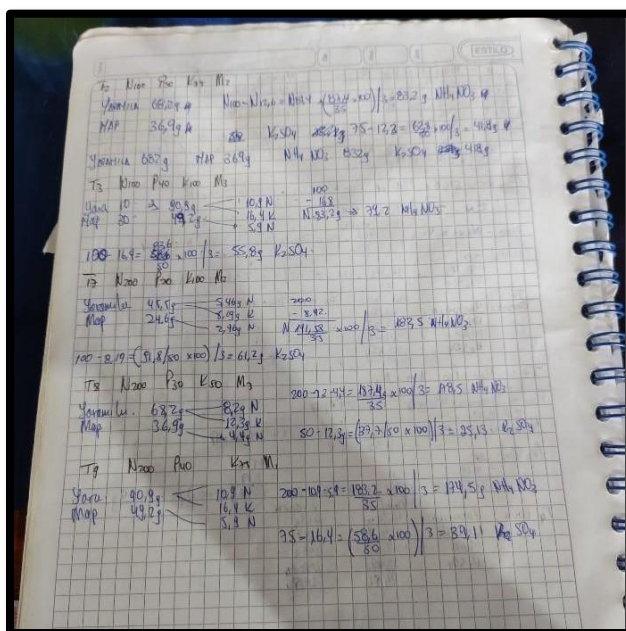 ESTILO
T2 N100 P30 K75 M2
Yaramila 68,2g N100-N12,6=N87,4 (87,4/35 x100)/3=83,2g NH4NO3
MAP 36,9g K2SO4 75-12,3= x100/3=41,8g
Yaramila 682g MAP 369g NH4NO3 832g K2SO4 418g
T3 N100 P40 K100 M3
Yara 10 → 90,9g 10,9N 100
Map 30 49,2g 16,4K - 16,8
5,9N N 83,2g → 79,2 NH4NO3
100-16,4= 83,6/50 x100/3= 55,8g K2SO4
T7 N200 P20 K100 M2
Yaramila 45,5g 5,46g N 200
Map 24,6g 8,19g K - 8,42
2,96g N N 191,58/35 x100/3= 182,5 NH4NO3
100-8,19=(91,8/50 x100)/3=61,2g K2SO4
T8 N200 P30 K50 M3
Yaramila. 68,2g 8,2g N 200-12,4,4=187,4g/35 x100/3= 178,5 NH4NO3
Map 36,9g 12,3g K
4,4g N 50-12,3g=(37,7/50 x100)/3=25,13 K2SO4
T9 N200 P40 K75 M1
Yara 90,9g 10,9N 200-10,9-5,9=183,2/35 x100/3=174,5g NH4NO3
Map 49,2g 16,4K
5,9N 75-16,4=(58,6/50 x100)/3=39,11 K2SO4